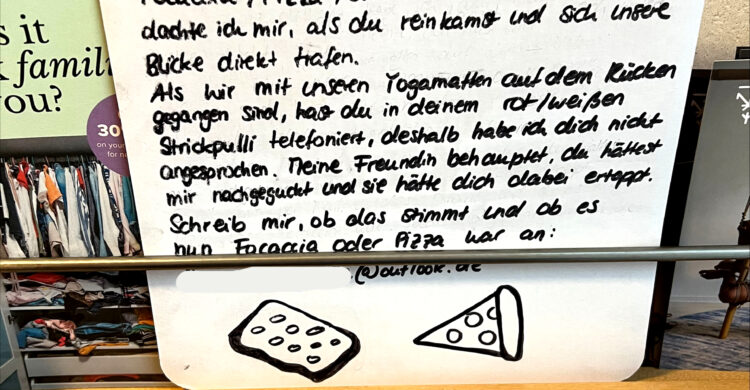 dachte ich mir, als du reinkamst und sich unsere
Blicke direkt trafen.
Als wir mit unseren Yogamatten auf dem Rücken
gegangen sind, hast du in deinem rot/weißen
Strickpulli telefoniert, deshalb habe ich dich nicht
angesprochen. Meine Freundin behauptet, du hättest
mir nachgeguckt und sie hätte dich dabei ertappt.
Schreib mir, ob das stimmt und ob es
nun Focaccia oder Pizza war an:
@outlook.de
s it
famil
you?
30
on your